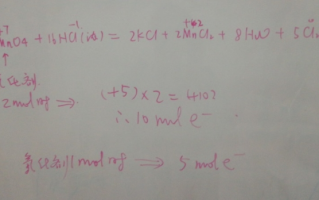 +7 -1 +2
MnO4 + 16HCl(浓) = 2KCl + 2MnCl2 + 8H2O + 5Cl2
↑
化剂
2mol时 ⇒ (+5)×2=+10价
∴10 mol e⁻
氧化剂1mol时 ⇒ 5 mol e⁻